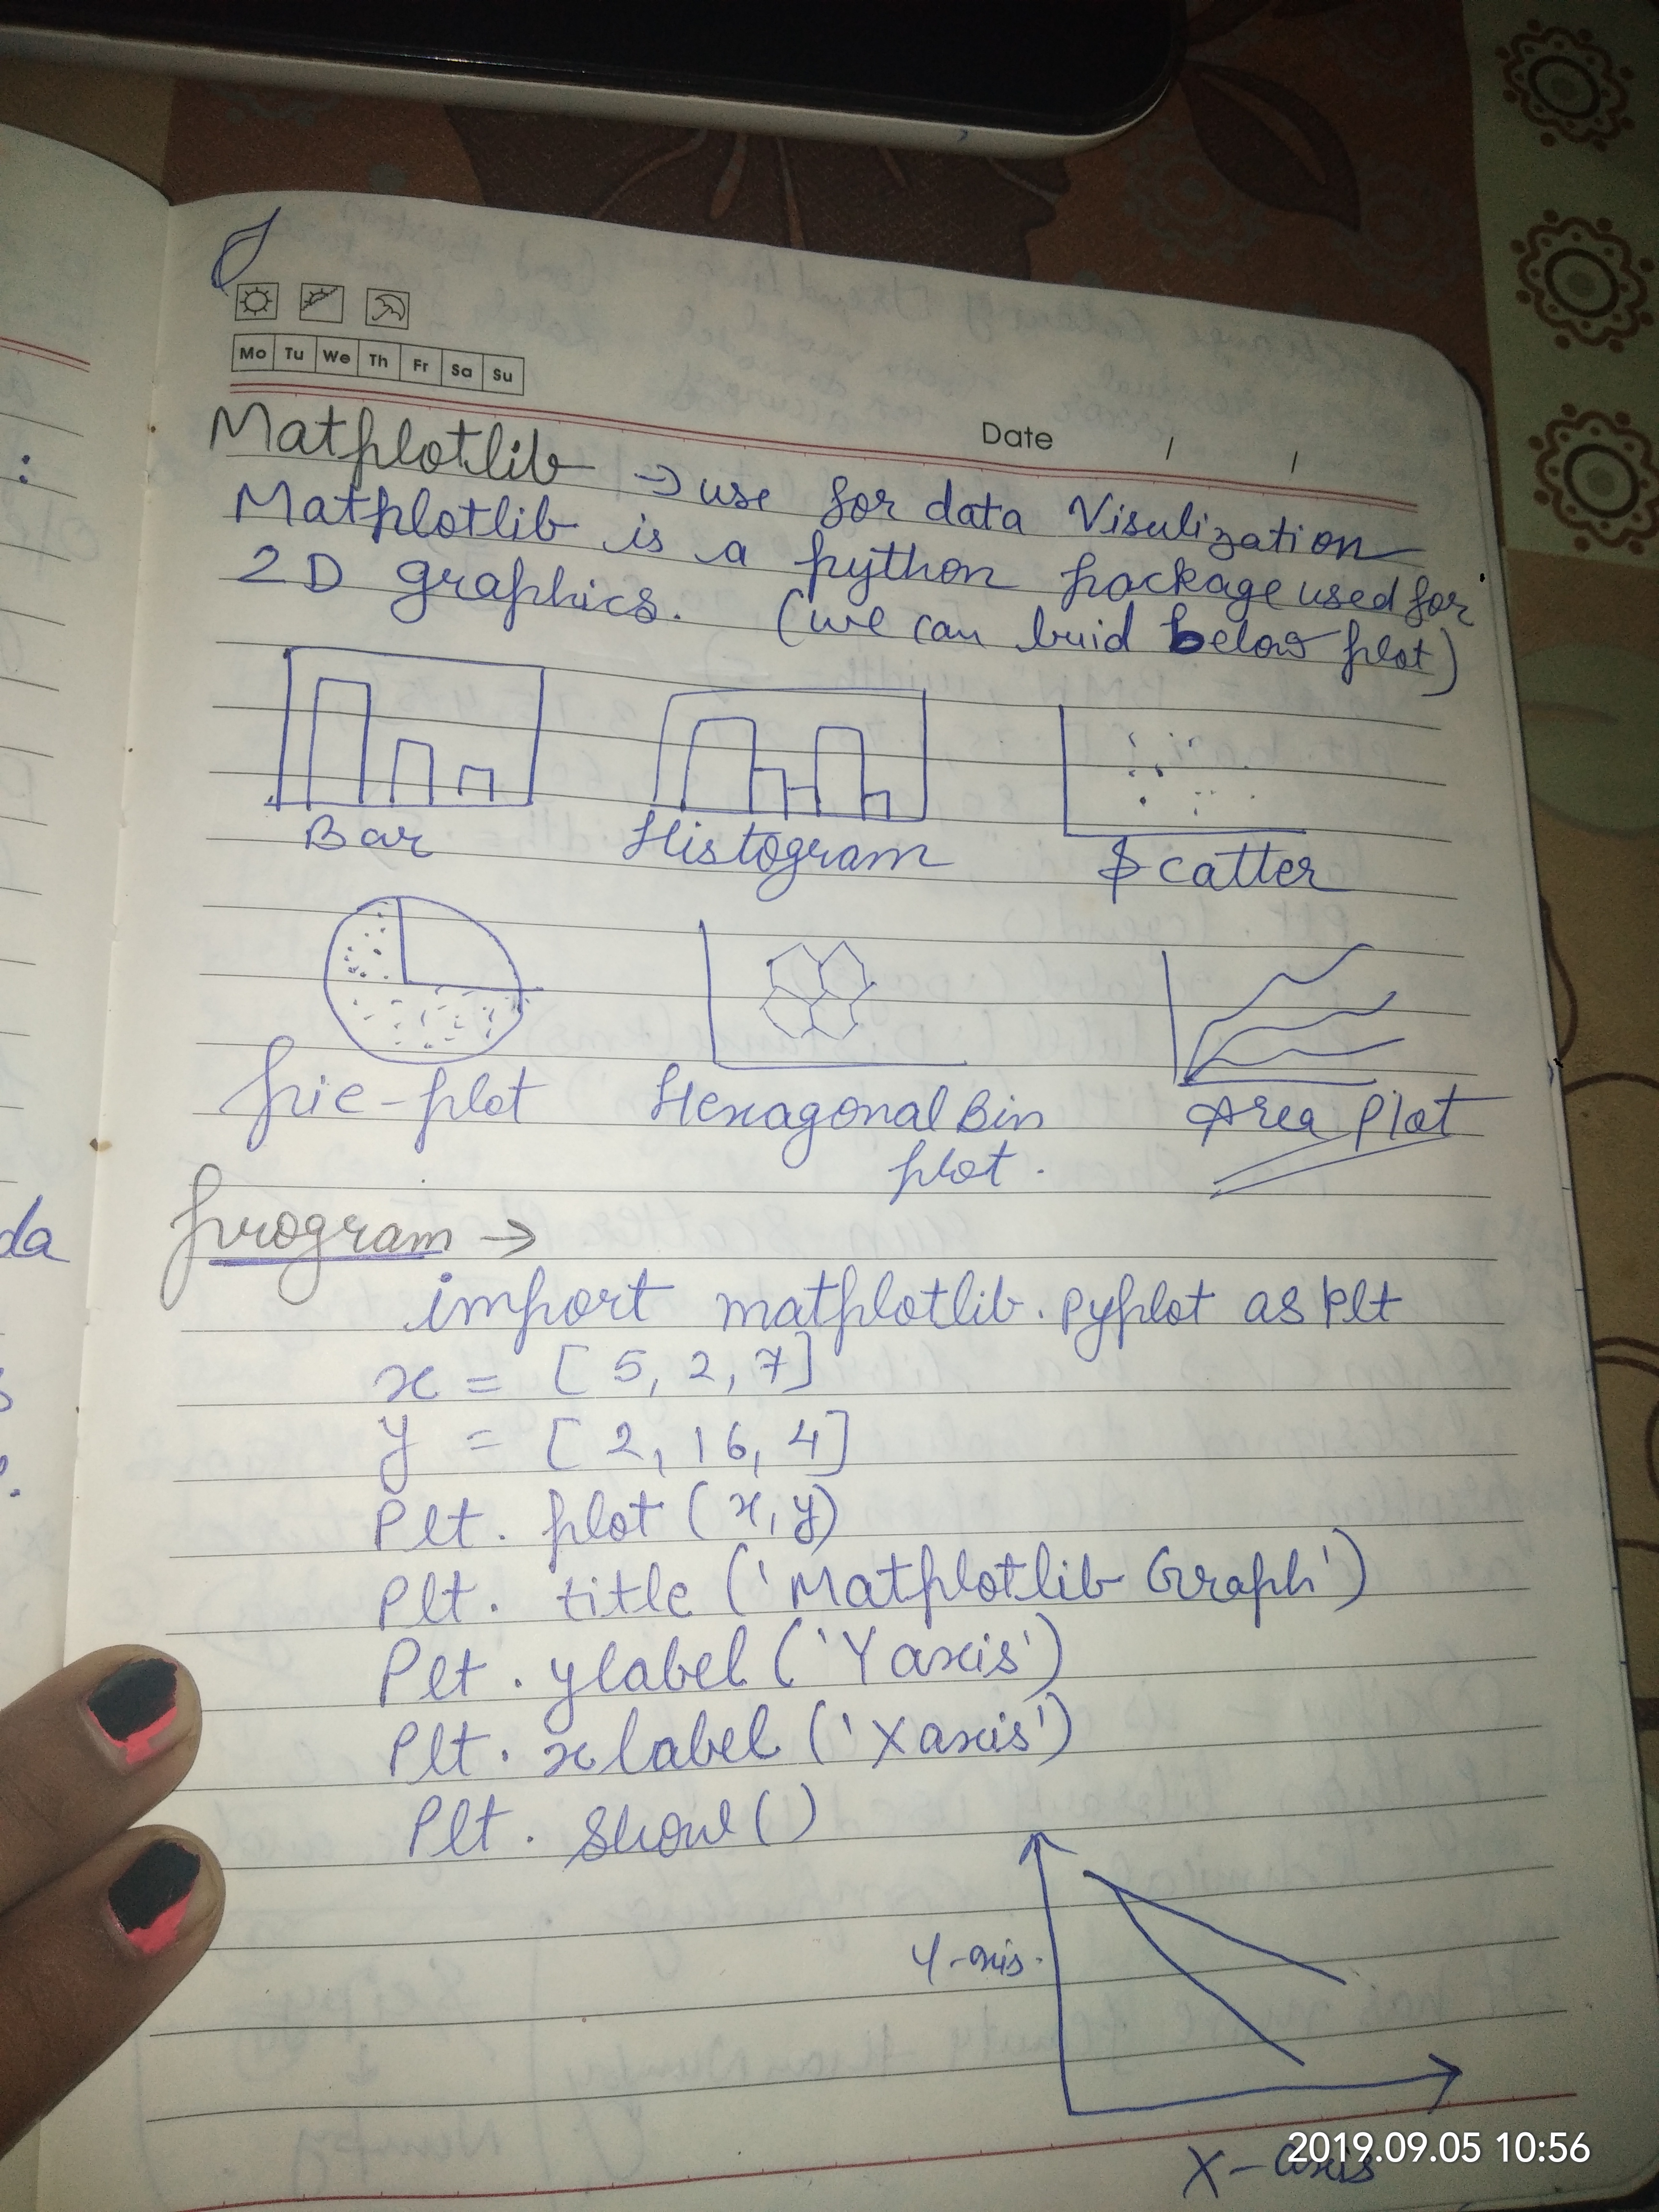 Mo Tu We Th Fr Sa Su
Date / /
Matplotlib → use for data Visulization
Matplotlib is a python package used for
2D graphics. (we can buid below plot)
Bar Histogram Scatter
pie-plot Hexagonal Bin Area Plot
plot.
program →
import matplotlib.pyplot as plt
x = [5, 2, 7]
y = [2, 16, 4]
Plt. plot (x, y)
Plt. title ('Matplotlib Graph')
Plt. ylabel ('Y axis')
Plt. xlabel ('X axis')
Plt. show ()
Y-axis.
X-axis
2019.09.05 10:56
da